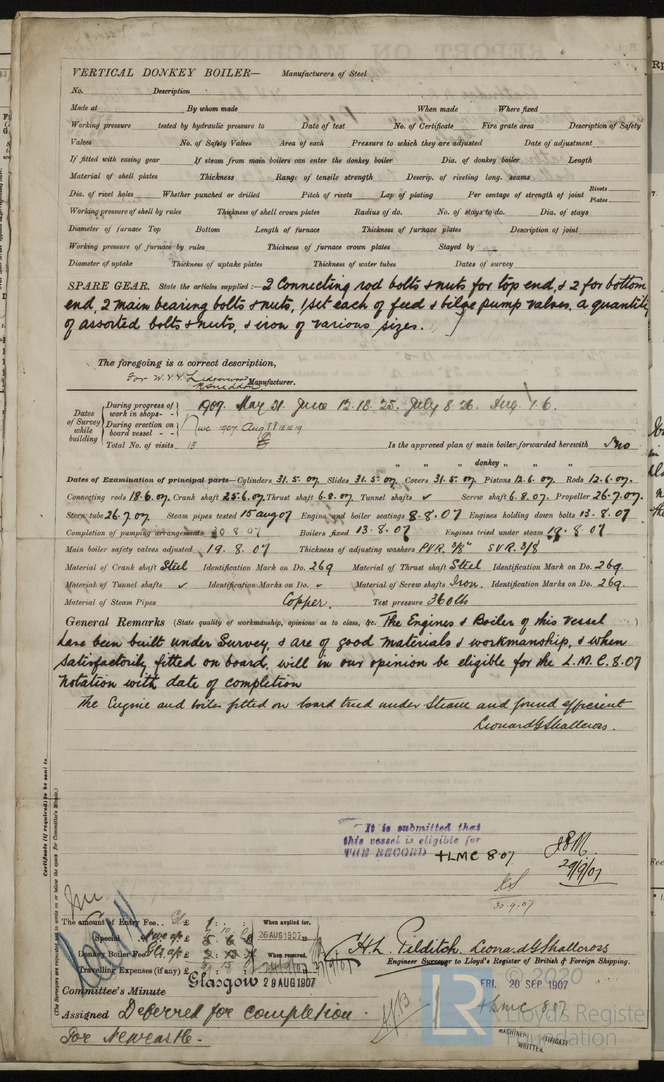 VERTICAL DONKEY BOILER— Manufacturers of Steel
No. Description
Made at By whom made When made Where fixed
Working pressure tested by hydraulic pressure to Date of test No. of Certificate Fire grate area Description of Safety
Valves No. of Safety Valves Area of each Pressure to which they are adjusted Date of adjustment
If fitted with easing gear If steam from main boilers can enter the donkey boiler Dia. of donkey boiler Length
Material of shell plates Thickness Range of tensile strength Descrip. of riveting long. seams
Dia. of rivet holes Whether punched or drilled Pitch of rivets Lap of plating Per centage of strength of joint Rivets Plates
Working pressure of shell by rules Thickness of shell crown plates Radius of do. No. of stays to do. Dia. of stays
Diameter of furnace Top Bottom Length of furnace Thickness of furnace plates Description of joint
Working pressure of furnace by rules Thickness of furnace crown plates Stayed by
Diameter of uptake Thickness of uptake plates Thickness of water tubes Dates of survey
SPARE GEAR. State the articles supplied :— 2 Connecting rod bolts & nuts for top end, & 2 for bottom
end, 2 main bearing bolts & nuts, 1 set each of feed & bilge pump valves, a quantity
of assorted bolts & nuts, & iron of various sizes.
The foregoing is a correct description,
For W. V. V. Lidgerwood Manufacturer.
Dates of Survey while building
During progress of work in shops - - 1907. May 31. June 12. 18. 25. July 8. 26. Aug. 1. 6.
During erection on board vessel - - 1907 Aug
Total No. of visits 13 Is the approved plan of main boiler forwarded herewith No
" " " donkey " " "
Dates of Examination of principal parts—Cylinders 31.5.07 Slides 31.5.07 Covers 31.5.07 Pistons 12.6.07. Rods 12.6.07.
Connecting rods 18.6.07. Crank shaft 25.6.07. Thrust shaft 6.8.07. Tunnel shafts ✓ Screw shaft 6.8.07. Propeller 26.7.07.
Stern tube 26.7.07 Steam pipes tested 15 aug 07 Engine and boiler seatings 8.8.07 Engines holding down bolts 13.8.07
Completion of pumping arrangements 20.8.07 Boilers fixed 13.8.07 Engines tried under steam 19.8.07
Main boiler safety valves adjusted 19.8.07 Thickness of adjusting washers PVR 3/8" SVR 3/8
Material of Crank shaft Steel Identification Mark on Do. 269 Material of Thrust shaft Steel Identification Mark on Do. 269.
Material of Tunnel shafts ✓ Identification Marks on Do. ✓ Material of Screw shafts Iron. Identification Marks on Do. 269
Material of Steam Pipes Copper. Test pressure 360 lbs
General Remarks (State quality of workmanship, opinions as to class, &c. The Engines & Boiler of this Vessel
have been built under Survey, & are of good materials & workmanship, & when
satisfactorily fitted on board, will in our opinion be eligible for the L.M.C. 8.07
notation with date of completion
The Engine and boiler fitted on board tried under Steam and found efficient
Leonard G Shallcross.
It is submitted that
this vessel is eligible for
THE RECORD + LMC 8.07
29/9/07
30.9.07
Certificate (if required) to be sent to
The amount of Entry Fee.. £ 1 : When applied for.
Special £ 26 AUG 1907
Donkey Boiler Fee £ When received,
Travelling Expenses (if any) £
H. L. Pilditch. Leonard G Shallcross
Engineer Surveyor to Lloyd's Register of British & Foreign Shipping.
Committee's Minute Glasgow 29 AUG 1907
FRI. 20 SEP 1907
Assigned Deferred for completion.
+ LMC 8.07
For Newcastle.
MACHINERY CERTIFICATE
WRITTEN
© 2020
LR Lloyd's Register
Foundation